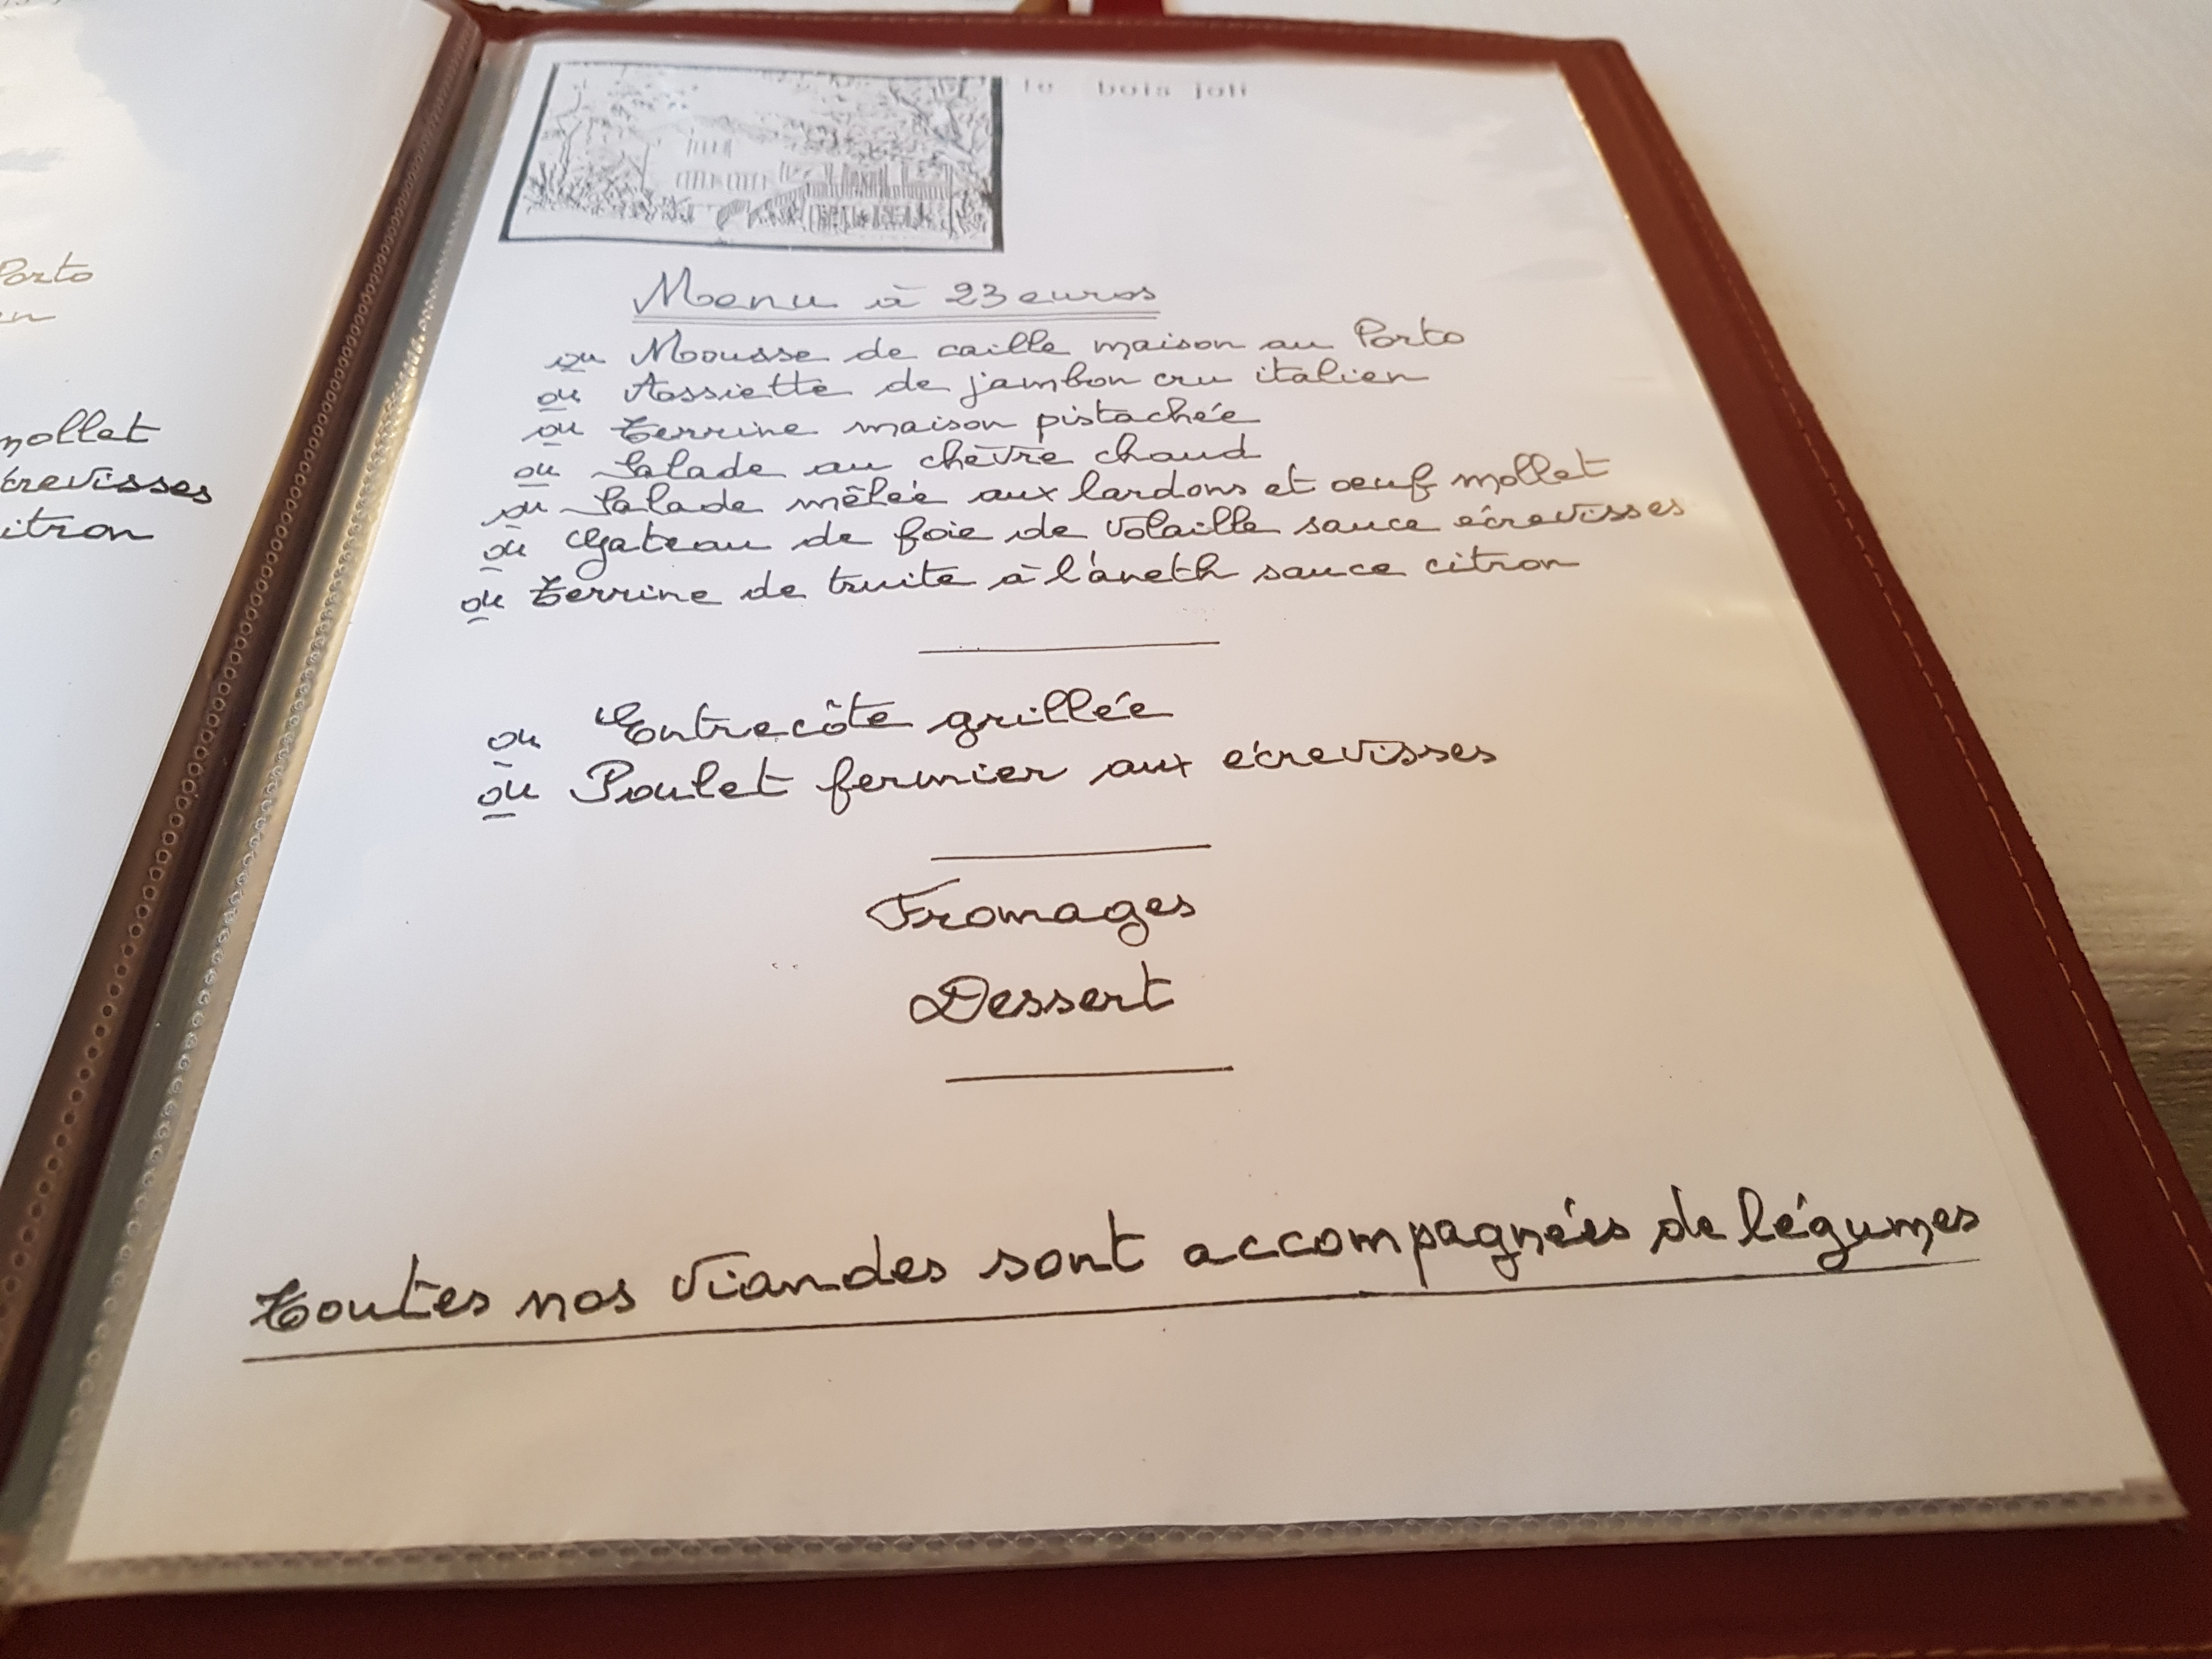 Porto
en
mollet
écrevisses
citron
le bois joli
Menu à 23 euros
ou Mousse de caille maison au Porto
ou Assiette de jambon cru italien
ou Terrine maison pistachée
ou Salade au chèvre chaud
ou Salade mêlée aux lardons et oeuf mollet
ou Gateau de foie de volaille sauce écrevisses
ou Terrine de truite à l'aneth sauce citron
ou Entrecôte grillée
ou Poulet fermier aux écrevisses
Fromages
Dessert
Toutes nos viandes sont accompagnées de légumes